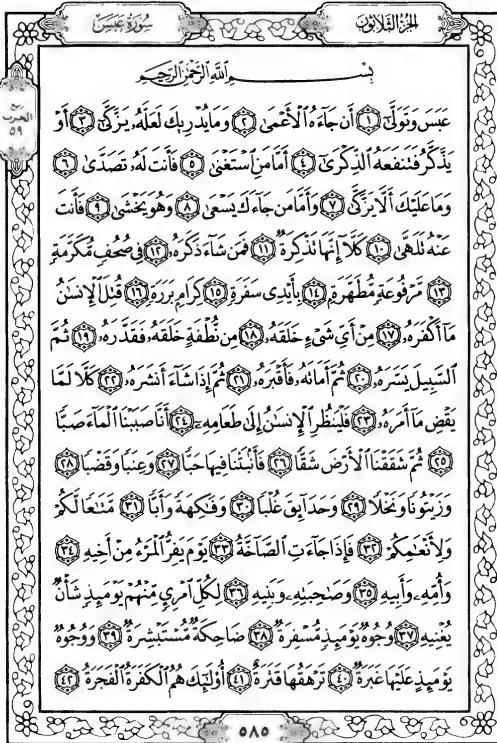 الجزء الثلاثون
سورة عبس
ربع الحزب ٥٩
بسم الله الرحمن الرحيم
عَبَسَ وَتَوَلَّىٰٓ ١ أَن جَآءَهُ ٱلْأَعْمَىٰ ٢ وَمَا يُدْرِيكَ لَعَلَّهُۥ يَزَّكَّىٰٓ ٣ أَوْ
يَذَّكَّرُ فَتَنفَعَهُ ٱلذِّكْرَىٰٓ ٤ أَمَّا مَنِ ٱسْتَغْنَىٰ ٥ فَأَنتَ لَهُۥ تَصَدَّىٰ ٦
وَمَا عَلَيْكَ أَلَّا يَزَّكَّىٰ ٧ وَأَمَّا مَن جَآءَكَ يَسْعَىٰ ٨ وَهُوَ يَخْشَىٰ ٩ فَأَنتَ
عَنْهُ تَلَهَّىٰ ١٠ كَلَّآ إِنَّهَا تَذْكِرَةٌ ١١ فَمَن شَآءَ ذَكَرَهُۥ ١٢ فِى صُحُفٍ مُّكَرَّمَةٍ
١٣ مَّرْفُوعَةٍ مُّطَهَّرَةٍۭ ١٤ بِأَيْدِى سَفَرَةٍ ١٥ كِرَامٍۭ بَرَرَةٍ ١٦ قُتِلَ ٱلْإِنسَٰنُ
مَآ أَكْفَرَهُۥ ١٧ مِنْ أَىِّ شَىْءٍ خَلَقَهُۥ ١٨ مِن نُّطْفَةٍ خَلَقَهُۥ فَقَدَّرَهُۥ ١٩ ثُمَّ
ٱلسَّبِيلَ يَسَّرَهُۥ ٢٠ ثُمَّ أَمَاتَهُۥ فَأَقْبَرَهُۥ ٢١ ثُمَّ إِذَا شَآءَ أَنشَرَهُۥ ٢٢ كَلَّا لَمَّا
يَقْضِ مَآ أَمَرَهُۥ ٢٣ فَلْيَنظُرِ ٱلْإِنسَٰنُ إِلَىٰ طَعَامِهِۦٓ ٢٤ أَنَّا صَبَبْنَا ٱلْمَآءَ صَبًّا
٢٥ ثُمَّ شَقَقْنَا ٱلْأَرْضَ شَقًّا ٢٦ فَأَنۢبَتْنَا فِيهَا حَبًّا ٢٧ وَعِنَبًا وَقَضْبًا ٢٨
وَزَيْتُونًا وَنَخْلًا ٢٩ وَحَدَآئِقَ غُلْبًا ٣٠ وَفَٰكِهَةً وَأَبًّا ٣١ مَّتَٰعًا لَّكُمْ
وَلِأَنْعَٰمِكُمْ ٣٢ فَإِذَا جَآءَتِ ٱلصَّآخَّةُ ٣٣ يَوْمَ يَفِرُّ ٱلْمَرْءُ مِنْ أَخِيهِ ٣٤
وَأُمِّهِۦ وَأَبِيهِ ٣٥ وَصَٰحِبَتِهِۦ وَبَنِيهِ ٣٦ لِكُلِّ ٱمْرِئٍ مِّنْهُمْ يَوْمَئِذٍ شَأْنٌ
يُغْنِيهِ ٣٧ وُجُوهٌ يَوْمَئِذٍ مُّسْفِرَةٌ ٣٨ ضَاحِكَةٌ مُّسْتَبْشِرَةٌ ٣٩ وَوُجُوهٌ
يَوْمَئِذٍ عَلَيْهَا غَبَرَةٌ ٤٠ تَرْهَقُهَا قَتَرَةٌ ٤١ أُو۟لَٰٓئِكَ هُمُ ٱلْكَفَرَةُ ٱلْفَجَرَةُ ٤٢
٥٨٥